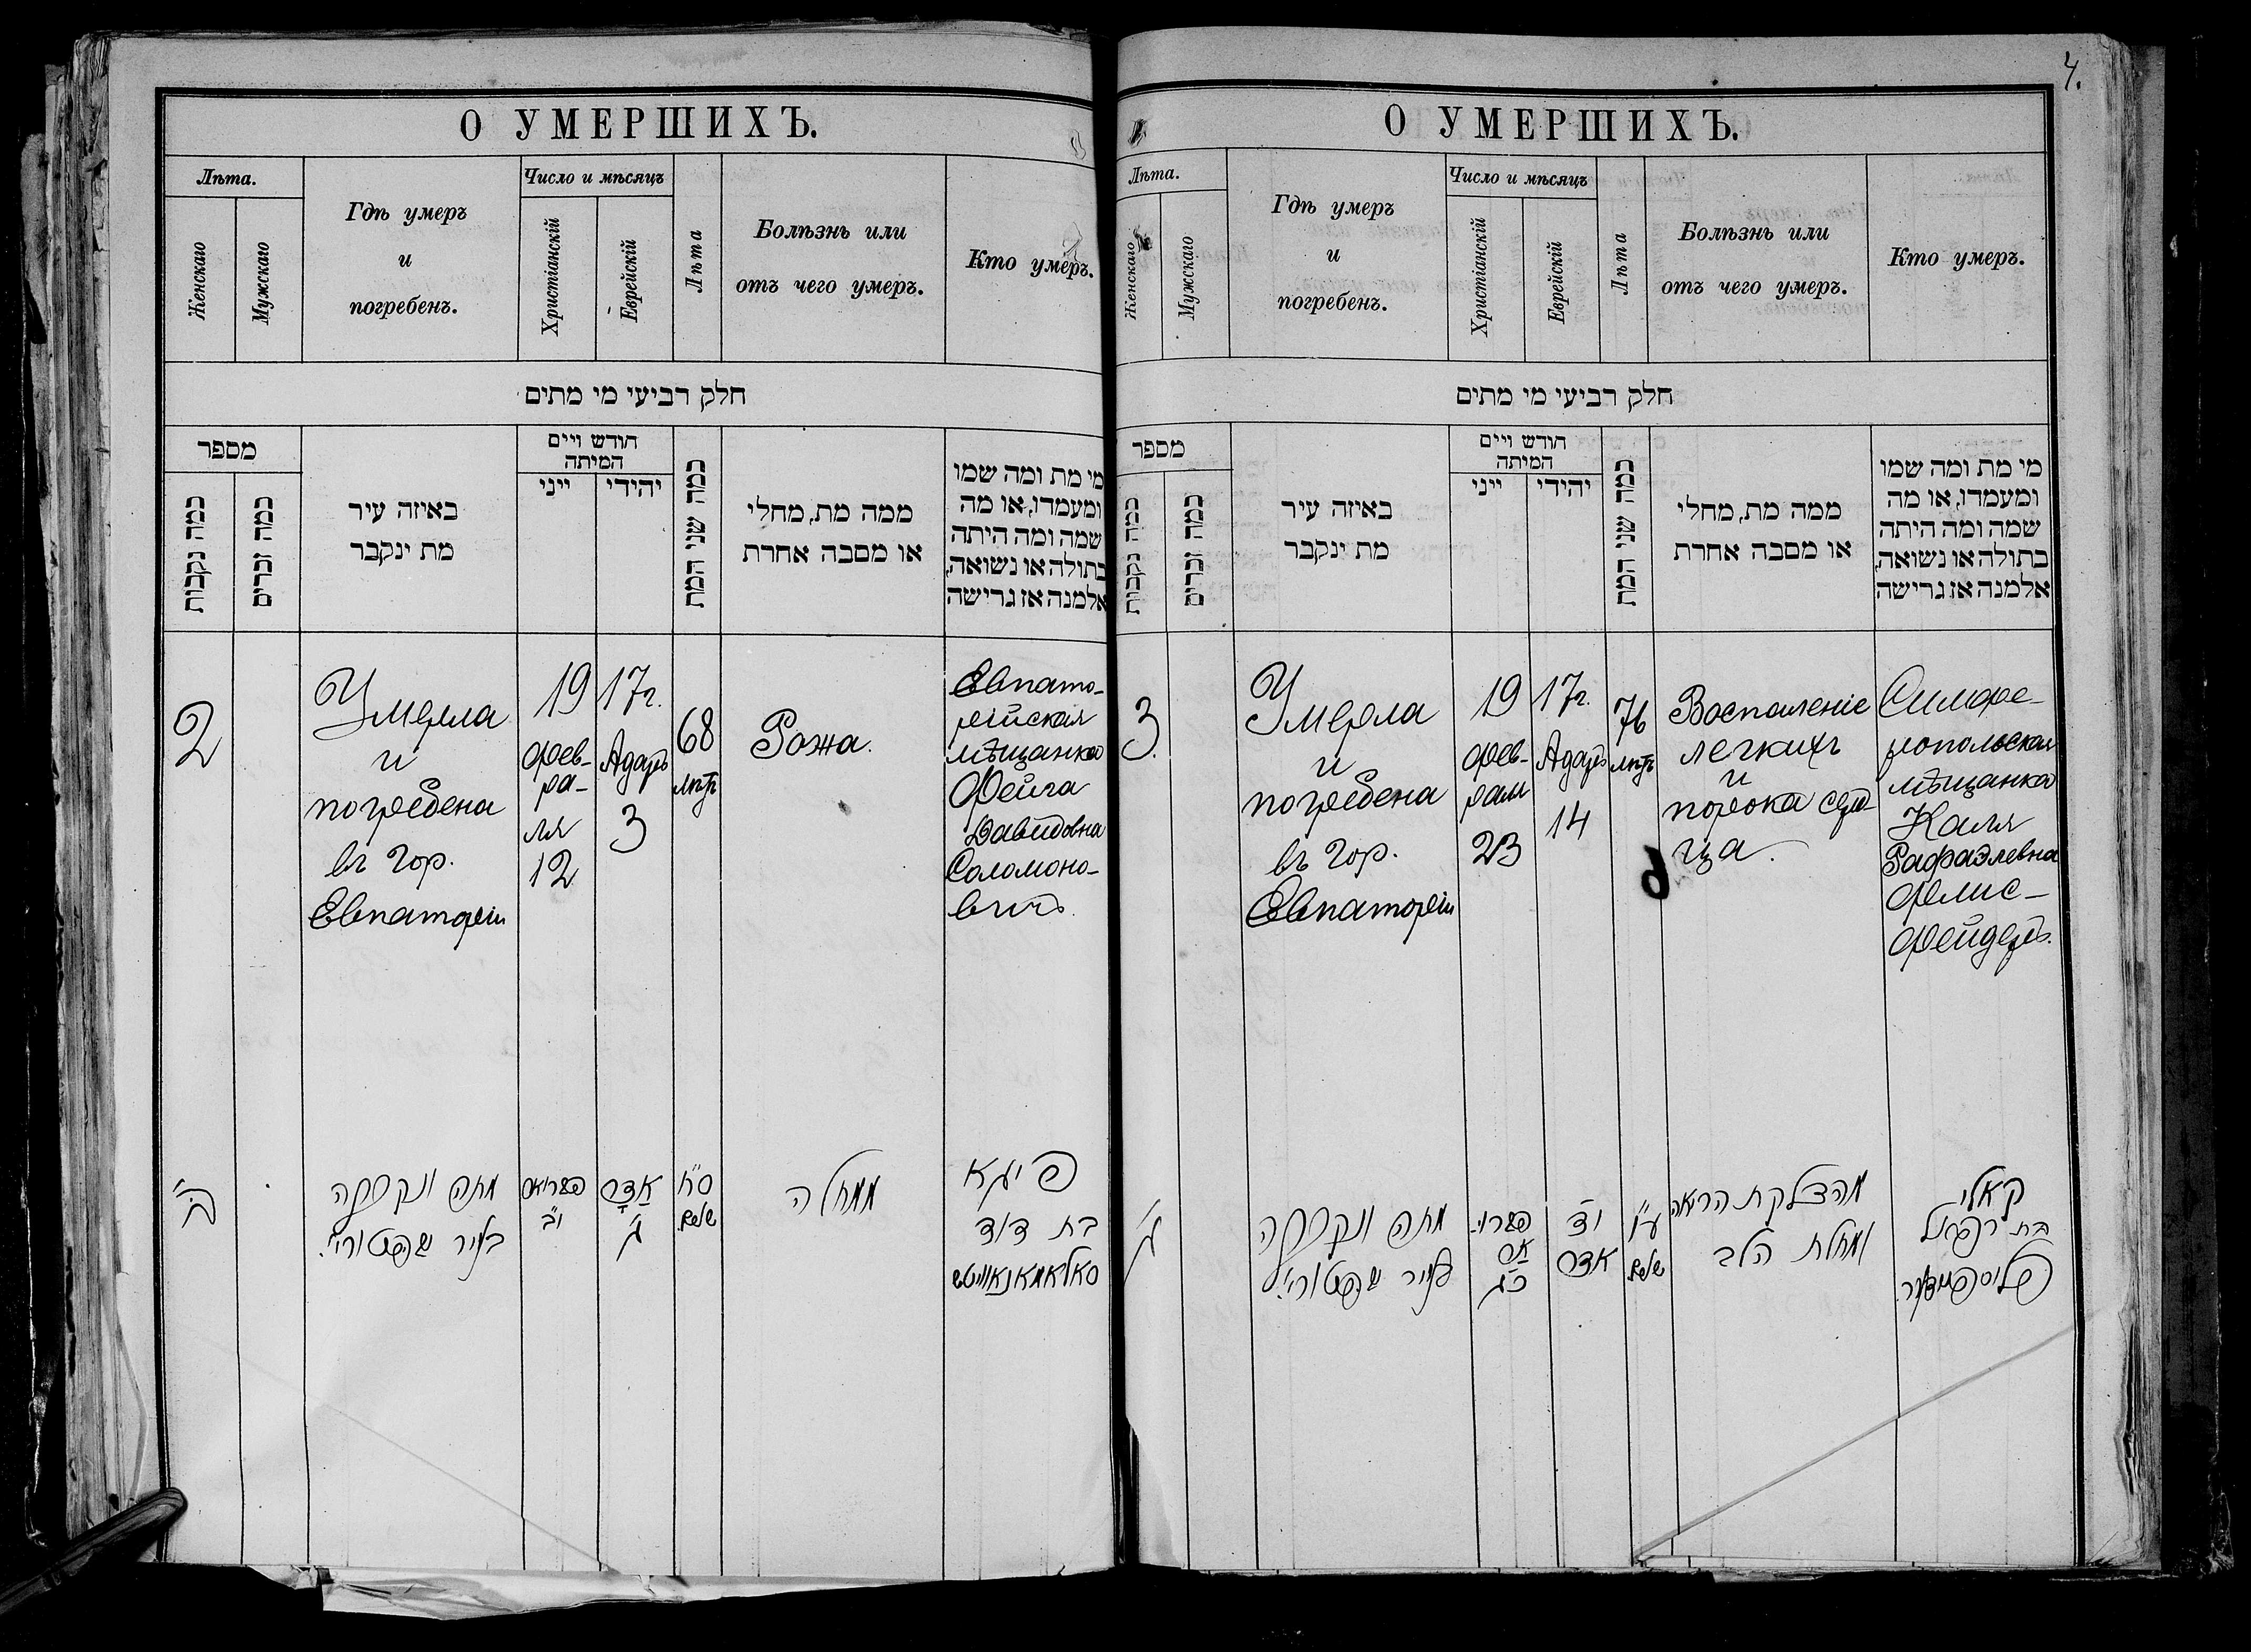 О УМЕРШИХЪ.
Лѣта.
Женскаго
Мужскаго
Гдѣ умеръ
и
погребенъ.
Число и мѣсяцъ
Христіанскій
Еврейскій
Лѣта
Болѣзнь или
отъ чего умеръ.
Кто умеръ.
חלק רביעי מי מתים
מספר
כמה נקבות
כמה זכרים
באיזה עיר
מת ינקבר
חודש ויים
המיתה
ייני
יהידי
כמה שני המת
ממה מת, מחלי
או מסבה אחרת
מי מת ומה שמו
ומעמדו, או מה
שמה ומה היתה
בתולה או נשואה,
אלמנה אז גרישה
2
Умерла
и
погребена
въ гор.
Евпаторіи
19
фев-
ра-
ля
12
17г.
Адаръ
3
68
лѣтъ
Рожа.
Евпато-
рійская
мѣщанка
Фейга
Давидовна
Соломоно-
вичъ.
ב'
מתה ונקברה
בעיר
י"ב
אדר
ג'
ס"ח
שנים
ממחלה
פייגא
בת דוד
סאלאמאנאוויטש
4.
О УМЕРШИХЪ.
Лѣта.
Женскаго
Мужскаго
Гдѣ умеръ
и
погребенъ.
Число и мѣсяцъ
Христіанскій
Еврейскій
Лѣта
Болѣзнь или
отъ чего умеръ.
Кто умеръ.
חלק רביעי מי מתים
מספר
כמה נקבות
כמה זכרים
באיזה עיר
מת ינקבר
חודש ויים
המיתה
ייני
יהידי
כמה שני המת
ממה מת, מחלי
או מסבה אחרת
מי מת ומה שמו
ומעמדו, או מה
שמה ומה היתה
בתולה או נשואה,
אלמנה אז גרישה
3.
Умерла
и
погребена
въ гор.
Евпаторіи
19
фев-
раля
23
17г.
Адаръ
14
76
лѣтъ
Воспаленіе
легкихъ
и
порока серд-
ца.
Симфе-
ропольская
мѣщанка
Каля
Рафаэлевна
Флис-
фейдеръ.
ג'
מתה ונקברה
בעיר
כ"ג
יד
אדר
ע"ו
שנים
מהדלקת הריאה
ומחלת הלב
קאלי
בת רפאל
פליספיידער